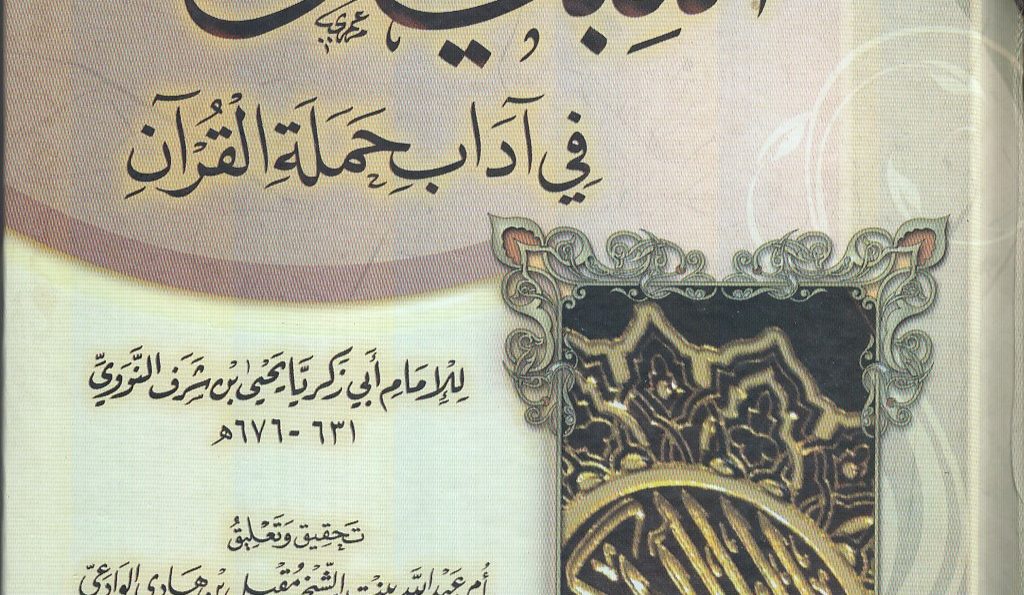 التبيان
في آدَابِ حَمَلَةِ الْقُرْآنِ
لِلْإِمَامِ أَبِي زَكَرِيَّاء يَحْيَىٰ بْنِ شَرَفِ النَّوَوِيِّ
٦٣١ - ٦٧٦ هـ
تَحْقِيق وَتَعْلِيقُ
أُم عَبْدِ اللَّهِ بِنْتِ الشَّيْخ مُقْبِل بْنِ هَادِي الوَادِعِيِّ